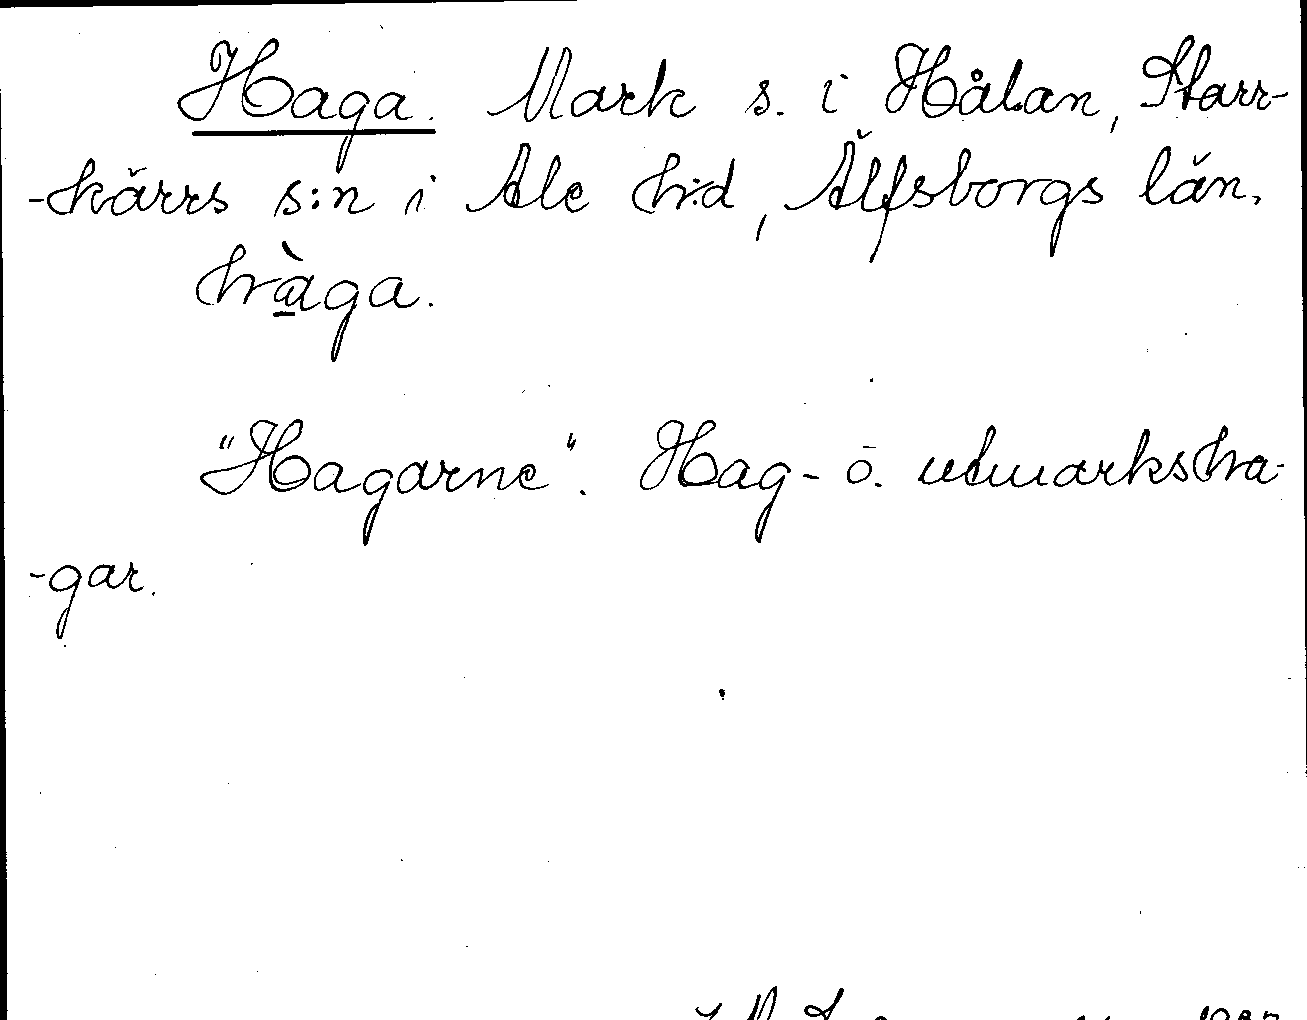 Haga. Mark s. i Hålan, Starr-
-kärrs s:n i Ale h:d, Älfsborgs län.
hàga.
"Hagarne". Hag- o. utmarksha-
-gar.